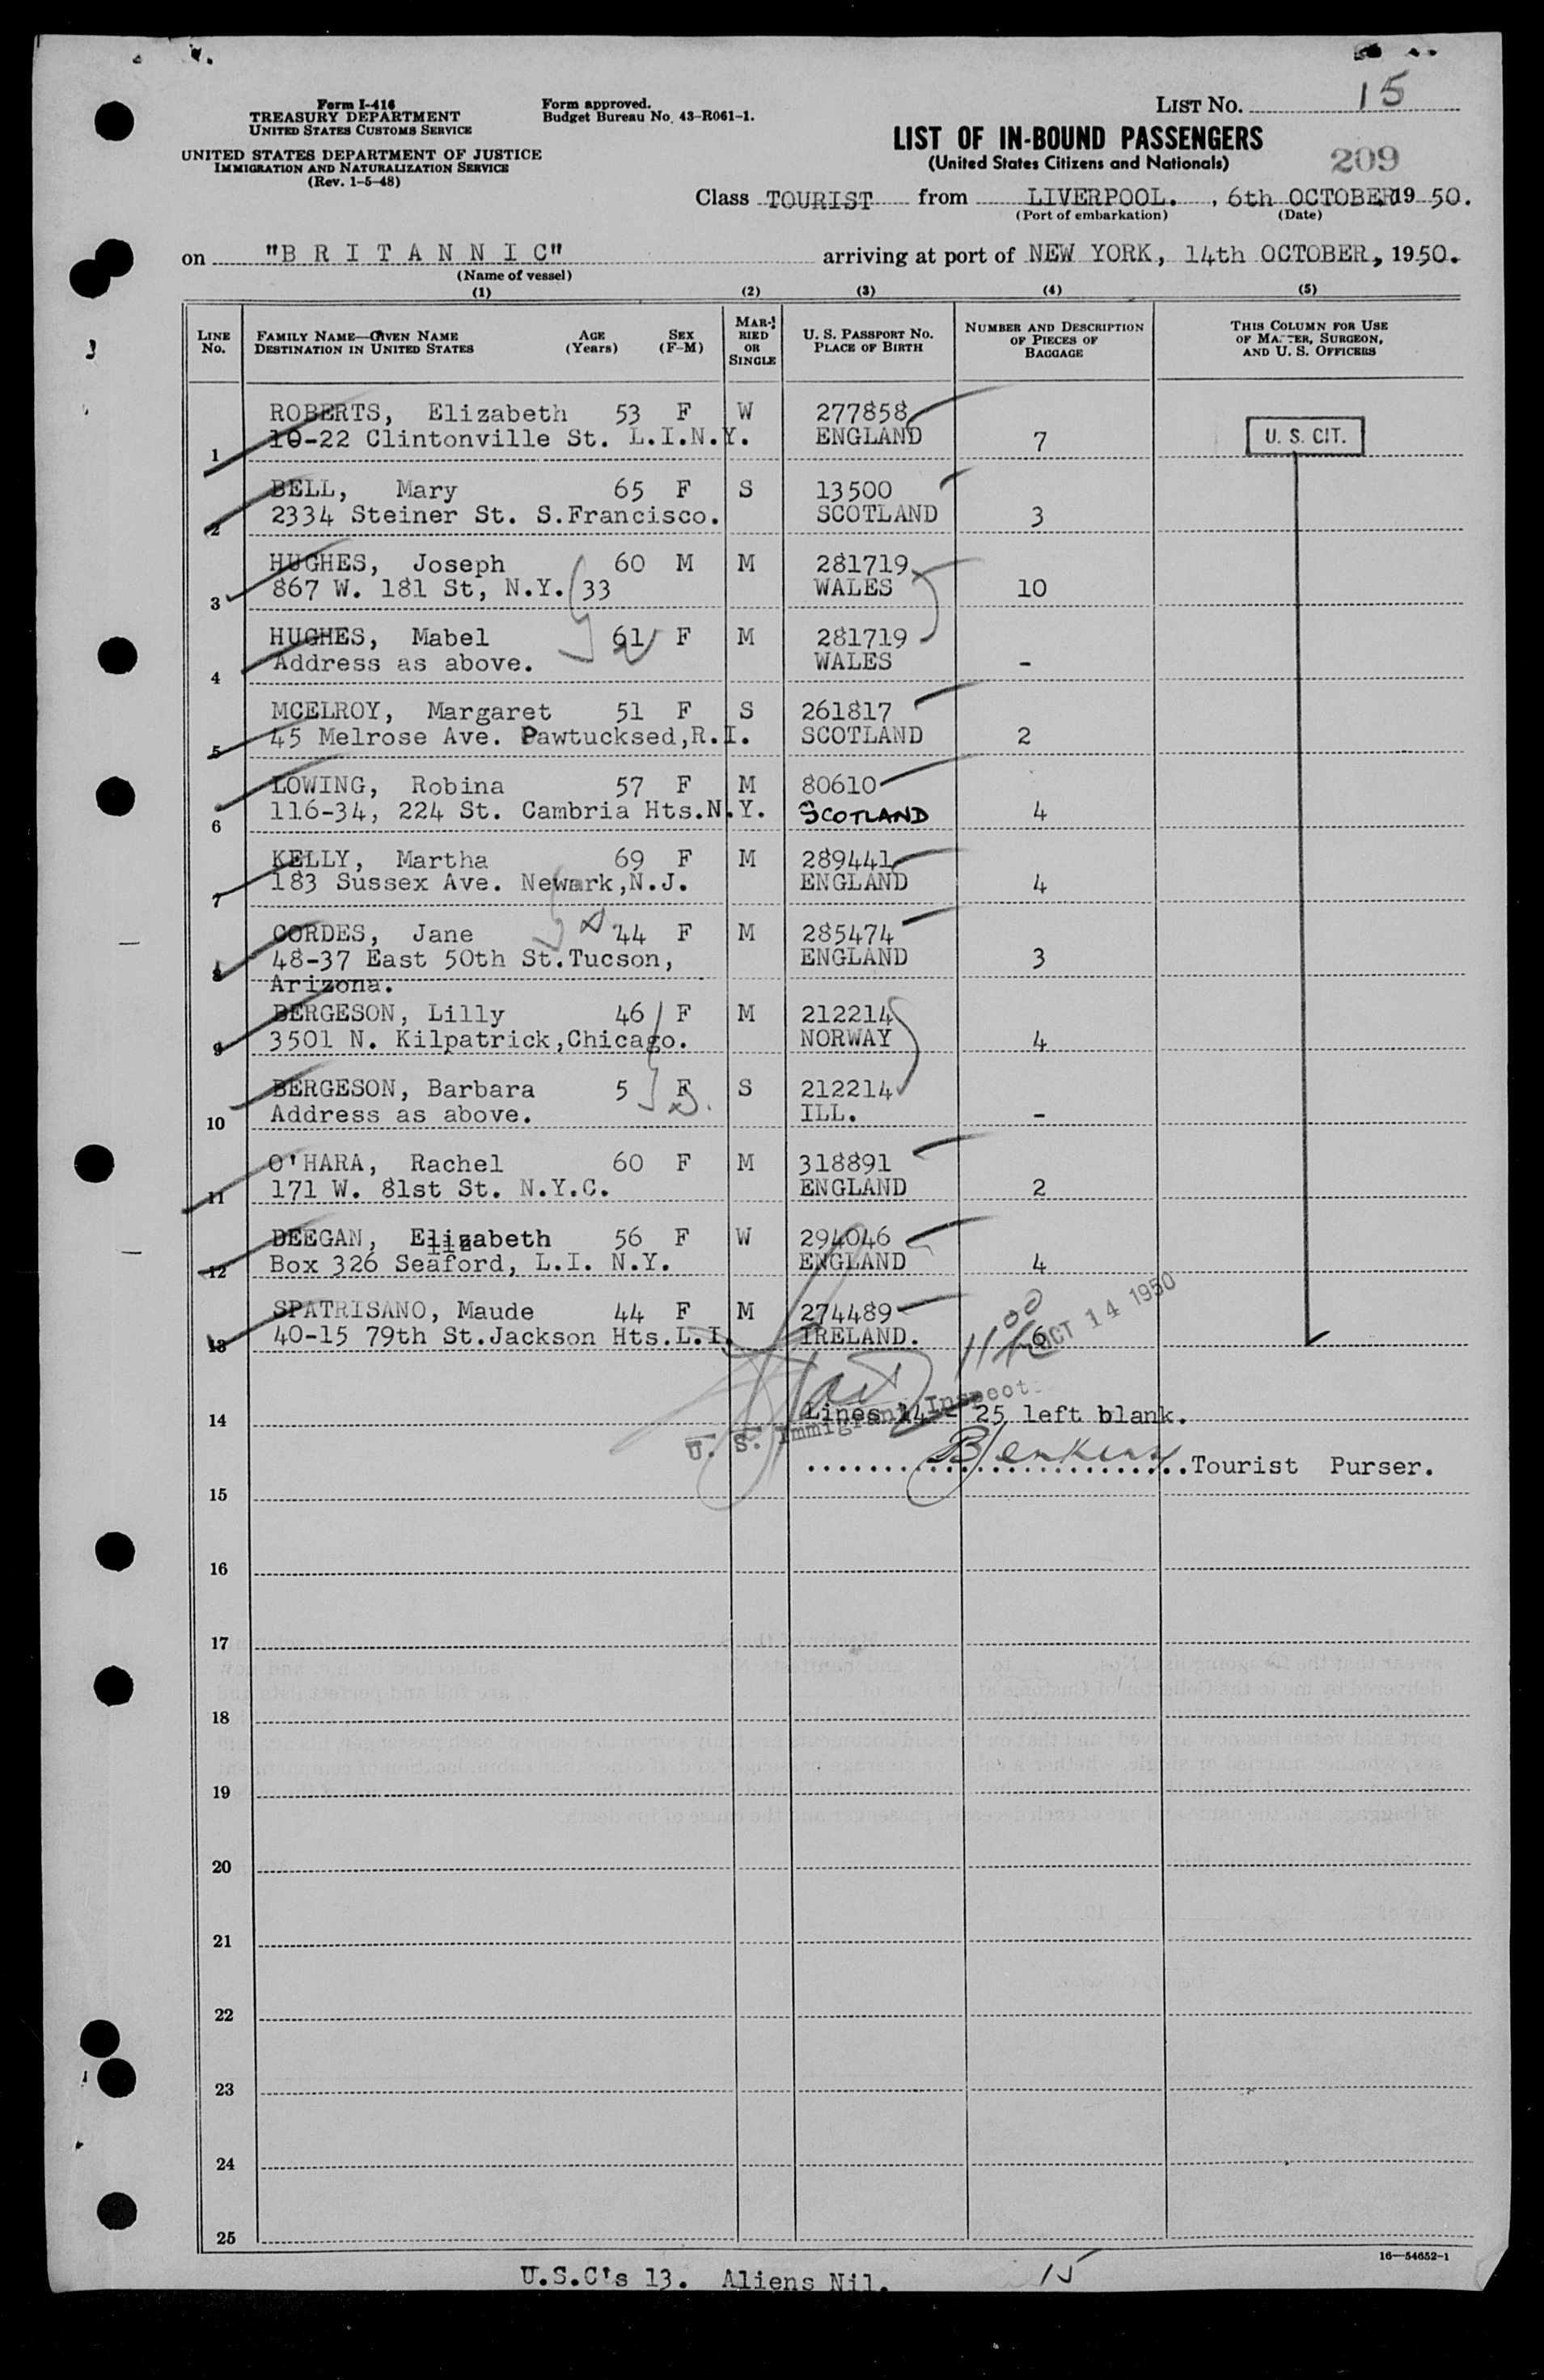 LIST No. 15
Form I-416
TREASURY DEPARTMENT
UNITED STATES CUSTOMS SERVICE
Form approved.
Budget Bureau No. 43-R061-1.
UNITED STATES DEPARTMENT OF JUSTICE
IMMIGRATION AND NATURALIZATION SERVICE
(Rev. 1-5-48)
LIST OF IN-BOUND PASSENGERS
(United States Citizens and Nationals)
209
Class TOURIST from LIVERPOOL. , 6th OCTOBER 19 50.
(Port of embarkation) (Date)
on "B R I T A N N I C" arriving at port of NEW YORK, 14th OCTOBER, 1950.
(Name of vessel)
(1) (2) (3) (4) (5)
LINE No. FAMILY NAME—GIVEN NAME DESTINATION IN UNITED STATES AGE (Years) SEX (F-M) MARRIED OR SINGLE U. S. PASSPORT No. PLACE OF BIRTH NUMBER AND DESCRIPTION OF PIECES OF BAGGAGE THIS COLUMN FOR USE OF MASTER, SURGEON, AND U. S. OFFICERS
ROBERTS, Elizabeth 53 F W 277858
1 10-22 Clintonville St. L.I.N.Y. ENGLAND 7 U. S. CIT.
BELL, Mary 65 F S 13500
2 2334 Steiner St. S.Francisco. SCOTLAND 3
HUGHES, Joseph 60 M M 281719
3 867 W. 181 St, N.Y. 33 WALES 10
HUGHES, Mabel 61 F M 281719
4 Address as above. WALES -
MCELROY, Margaret 51 F S 261817
5 45 Melrose Ave. Pawtucksed,R.I. SCOTLAND 2
LOWING, Robina 57 F M 80610
6 116-34, 224 St. Cambria Hts.N.Y. SCOTLAND 4
KELLY, Martha 69 F M 289441
7 183 Sussex Ave. Newark,N.J. ENGLAND 4
CORDES, Jane 44 F M 285474
8 48-37 East 50th St.Tucson, ENGLAND 3
Arizona.
BERGESON, Lilly 46 F M 212214
9 3501 N. Kilpatrick,Chicago. NORWAY 4
BERGESON, Barbara 5 F S 212214
10 Address as above. ILL. -
O'HARA, Rachel 60 F M 318891
11 171 W. 81st St. N.Y.C. ENGLAND 2
DEEGAN, Elizabeth 56 F W 294046
12 Box 326 Seaford, L.I. N.Y. ENGLAND 4
SPATRISANO, Maude 44 F M 274489
13 40-15 79th St.Jackson Hts.L.I. IRELAND. 6
OCT 14 1950
14 Lines 14 - 25 left blank.
U. S. Immigrant Inspect
Tourist Purser.
15
16
17
18
19
20
21
22
23
24
25
16—54652-1
U.S.C's 13. Aliens Nil. 15